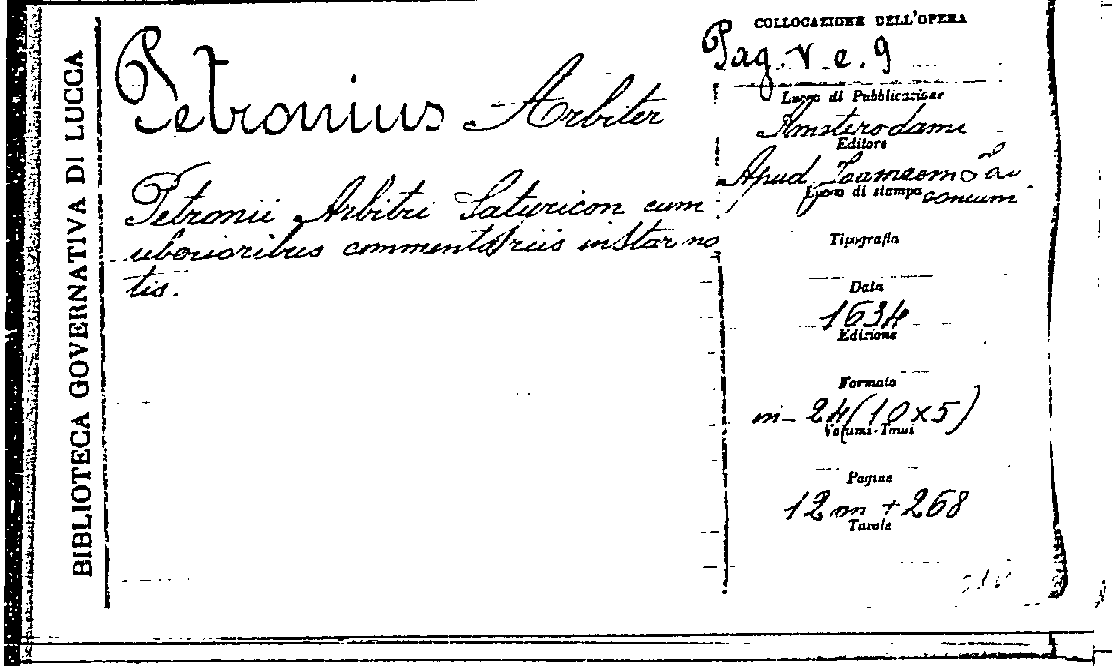 BIBLIOTECA GOVERNATIVA DI LUCCA
Petronius Arbiter
Petronii Arbitri Satyricon cum
uberioribus commentariis instar no
tis.
COLLOCAZIONE DELL'OPERA
Pag. V. e. 9
Luogo di Pubblicazione
Amsterodami
Editore
Apud
Luogo di stampa
Tipografia
Data
1634
Edizione
Formato
in-24 (10x5)
Volumi-Tomi
Pagine
12 m + 268
Tavole